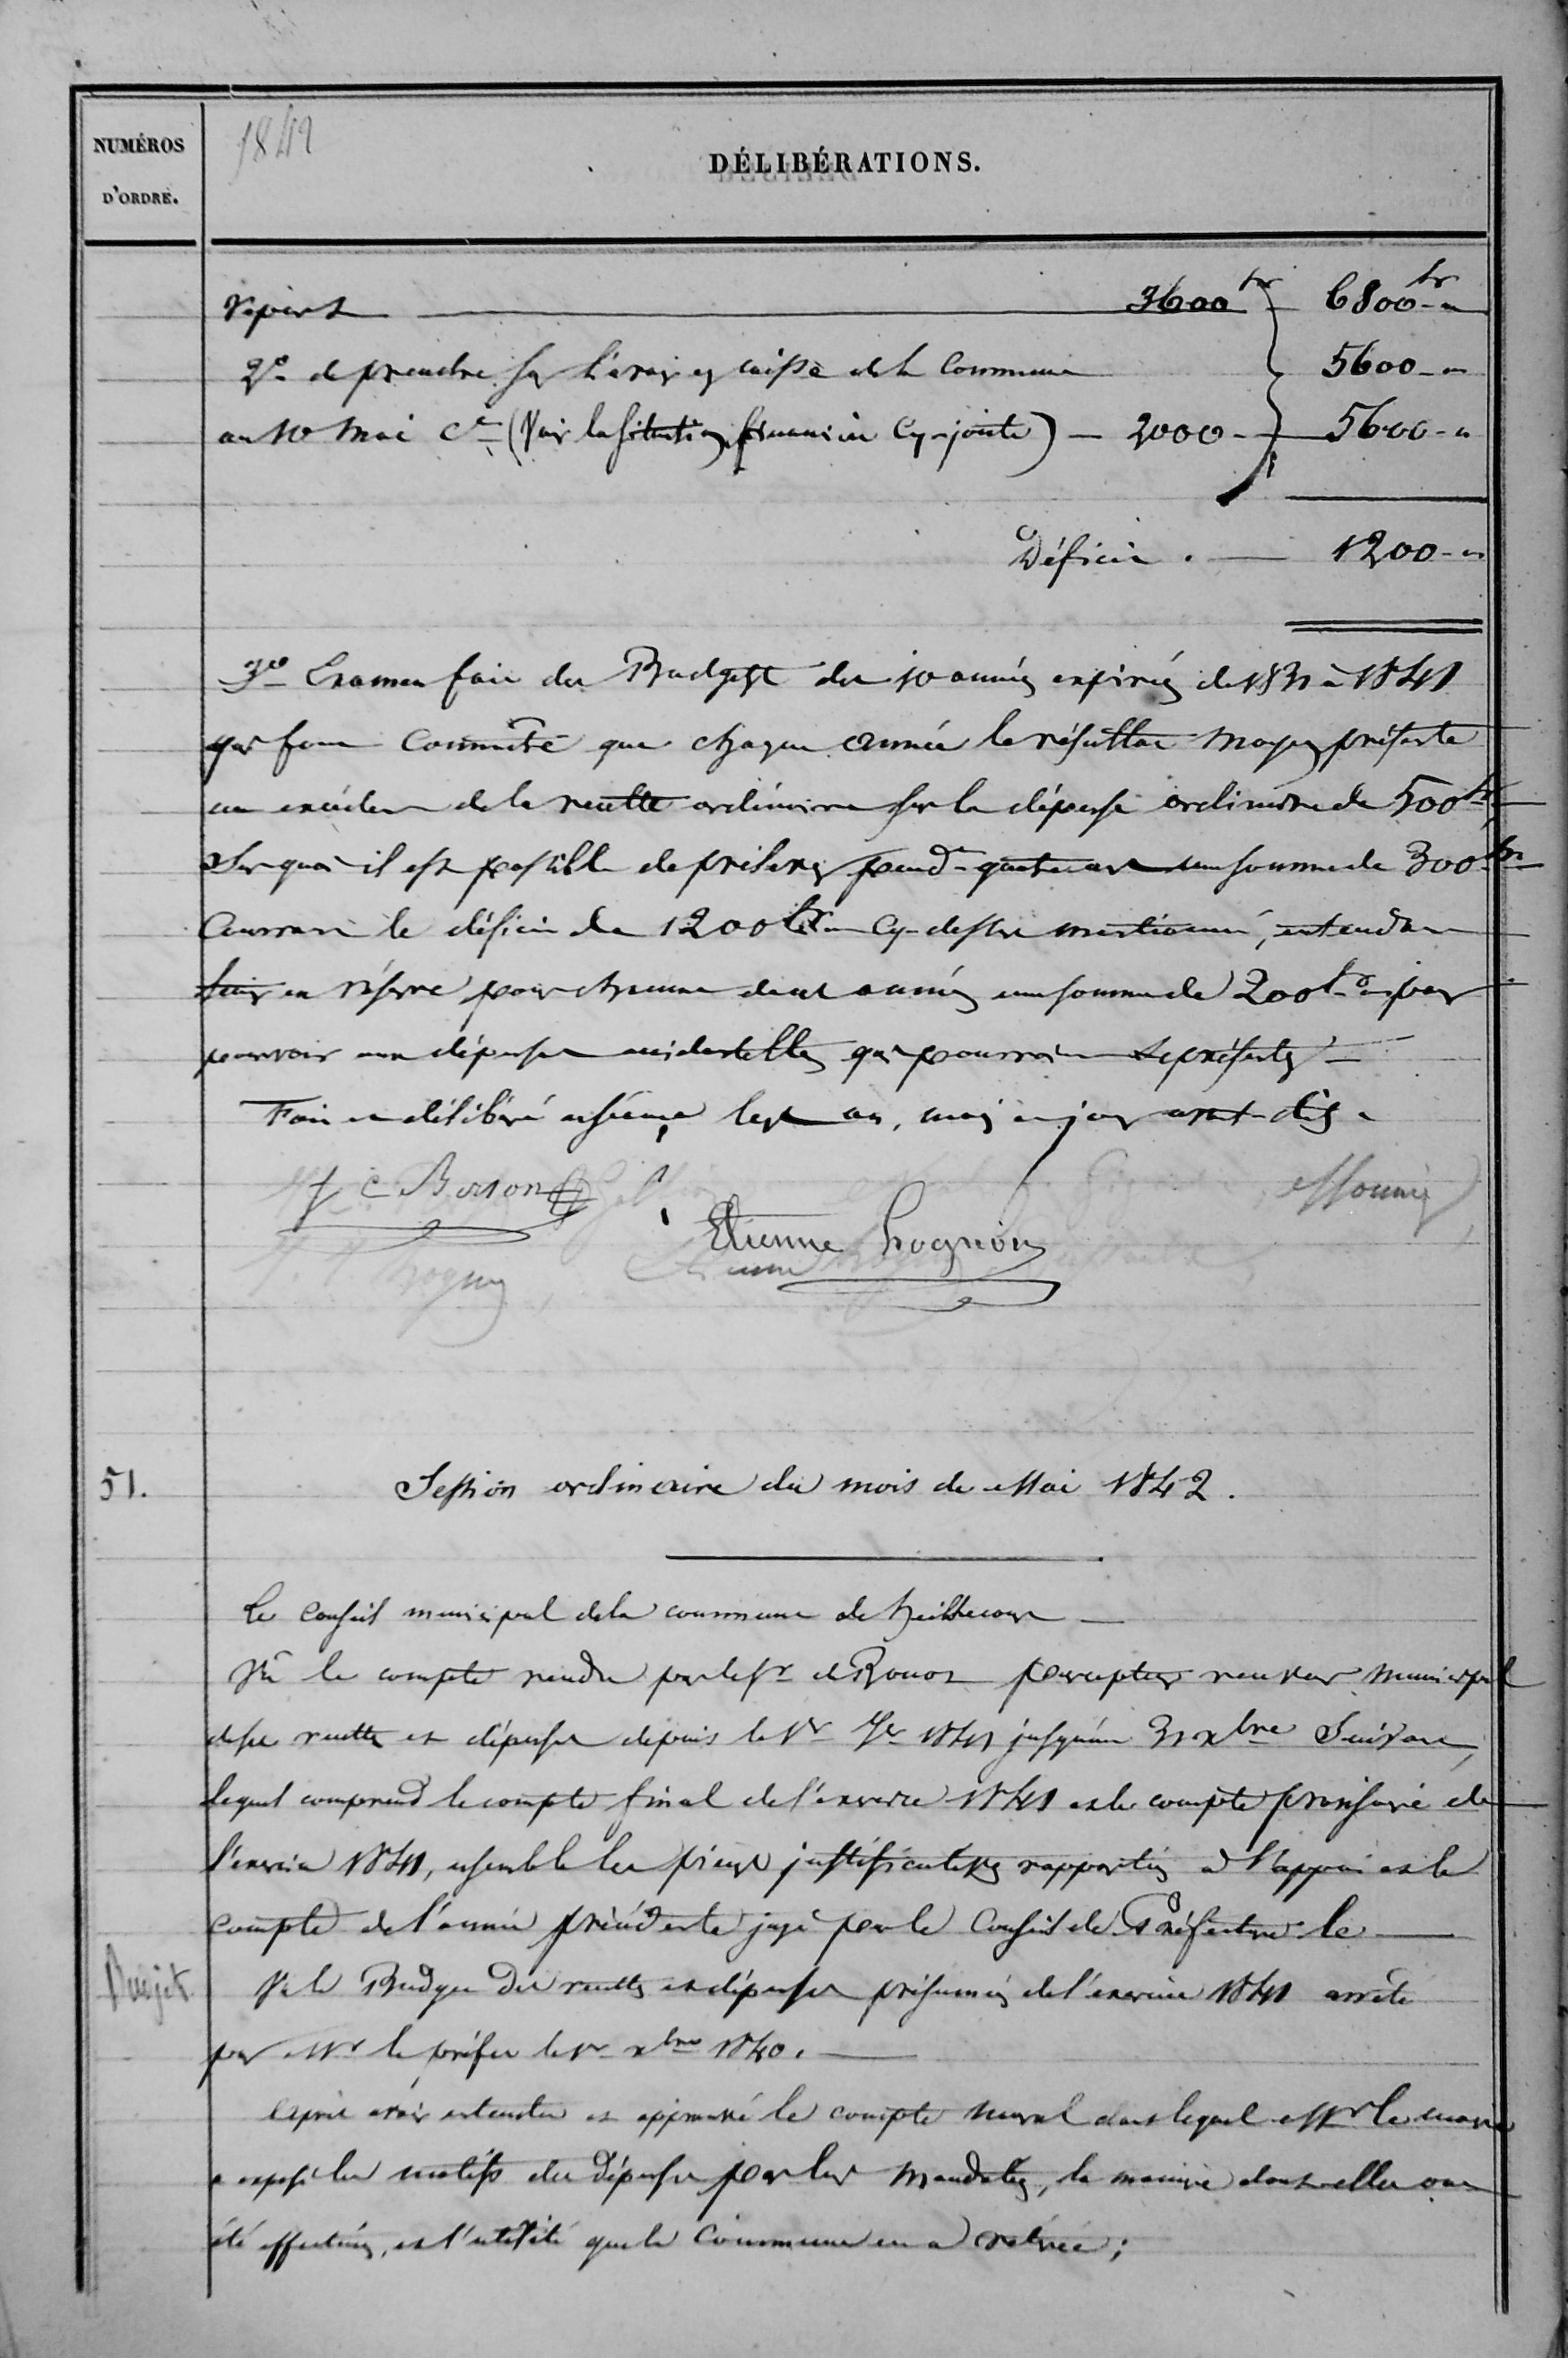 NUMÉROS
D'ORDRE.
1842
DÉLIBÉRATIONS.
Report 3600 fr 6800 fr "
2° à prendre sur l'avoir en caisse de la Commune 5600 "
au 10 Mai Ct (Voir la situation financière Cy-jointe) — 2000 - 5600 - "
Déficit . — 1200 - "
3° Examen fait des Budgets des 10 années expirées de 1831 à 1841
que chaque année le résultat moyen présente
un excédent de la recette ordinaire sur la dépense ordinaire de 500 fr
sur quoi il est possible de prélever pendt quatre ans une somme de 300 fr
Couvrant le déficit de 1200 fr Cy-dessus mentionné,
en réserve pour chacune de ces années une somme de 200 f pour
pourvoir aux dépenses accidentelles qui pourraient se présenter
Fait et délibéré en séance les an, mois et jour avant-dits
J C Borson
Etienne Hognon
51.
Session ordinaire du mois de Mai 1842.
Le Conseil municipal de la commune de heillecourt —
Vû le compte rendu par le Sr percepteur receveur Municipal
de ses recettes et dépenses depuis le 1er Jer 1841 jusqu'au 31 xbre Suivant,
lequel comprend le compte final de l'exercice et le compte provisoire de
l'exercice 1841, ensemble les pièces justificatives rapportées à l'appui et le
compte de l'année précédente jugé par le Conseil de Préfecture le —
Budget
Vu le Budget des recettes et dépenses présumées de l'exercice 1841 arrêté
par Mr le préfet le 1er xbre 1840. —
après avoir entendu et approuvé le compte moral dans lequel Mr le maire
a exposé les motifs des dépenses par lui Mandatées, la manière dont elles ont
été effectuées, et l'utilité que la Commune en a retirée ;